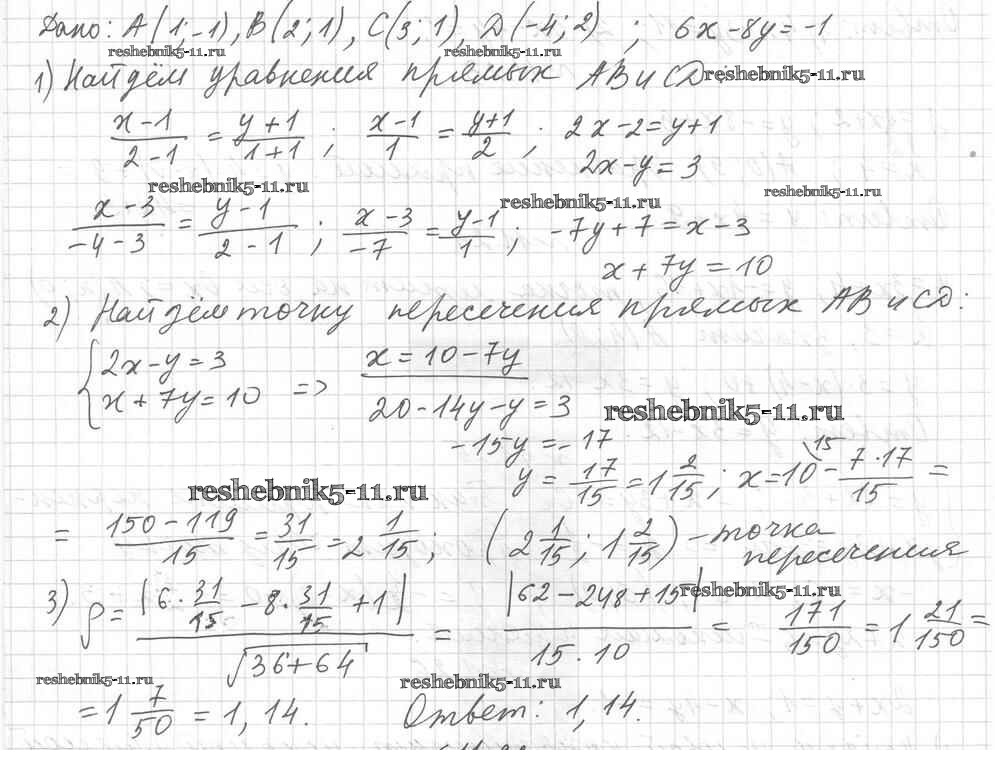 Дано: A(1;-1), B(2;1), C(3;1), D(-4;2) ; 6x-8y=-1
reshebnik5-11.ru reshebnik5-11.ru
1) Найдём уравнения прямых AB и CD: reshebnik5-11.ru
(x-1)/(2-1) = (y+1)/(1+1) ; (x-1)/1 = (y+1)/2 ; 2x-2=y+1
2x-y=3
reshebnik5-11.ru reshebnik5-11.ru reshebnik5-11.ru
(x-3)/(-4-3) = (y-1)/(2-1) ; (x-3)/(-7) = (y-1)/1 ; -7y+7=x-3
x+7y=10
2) Найдём точку пересечения прямых AB и CD:
{2x-y=3
x+7y=10 => x=10-7y
20-14y-y=3 reshebnik5-11.ru
-15y=-17
y = 17/15 = 1 2/15 ; x=10 \15 - (7·17)/15 =
reshebnik5-11.ru
= (150-119)/15 = 31/15 = 2 1/15 ; (2 1/15 ; 1 2/15) - точка
пересечения
reshebnik5-11.ru
3) ρ = |6·31/15 - 8·31/15 + 1| / √(36+64) = |62-248+15| / (15·10) = 171/150 = 1 21/150 =
reshebnik5-11.ru reshebnik5-11.ru
= 1 7/50 = 1,14. Ответ: 1,14.